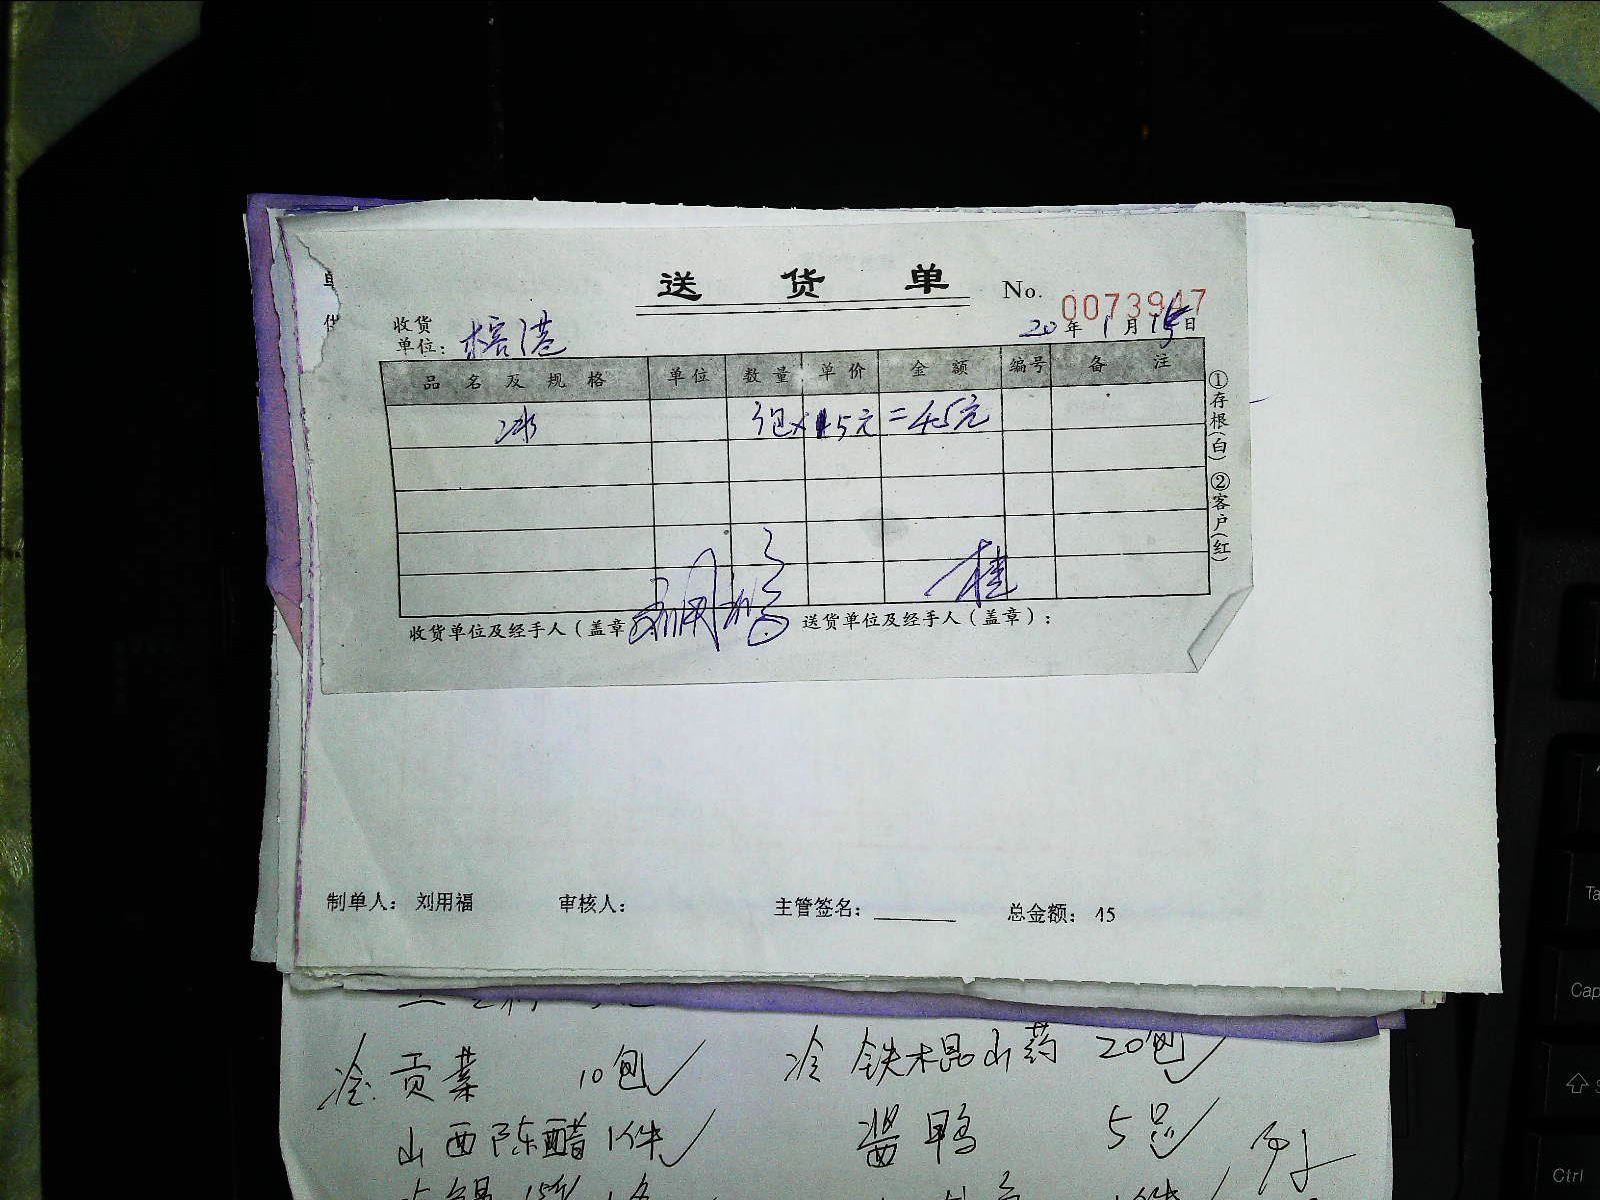 送 货 单
No. 0073947
收货
单位: 榕港
20 年 1 月 15 日
品名及规格 单位 数量 单价 金额 编号 备注
冰 3包×15元=45元
①存根(白) ②客户(红)
刘用福 桂
收货单位及经手人(盖章 送货单位及经手人(盖章):
制单人: 刘用福 审核人: 主管签名: 总金额: 45
冷 贡菜 10包 冷 铁木棍山药 20包
山西陈醋 1件 酱鸭 5只
Cap
Ctrl